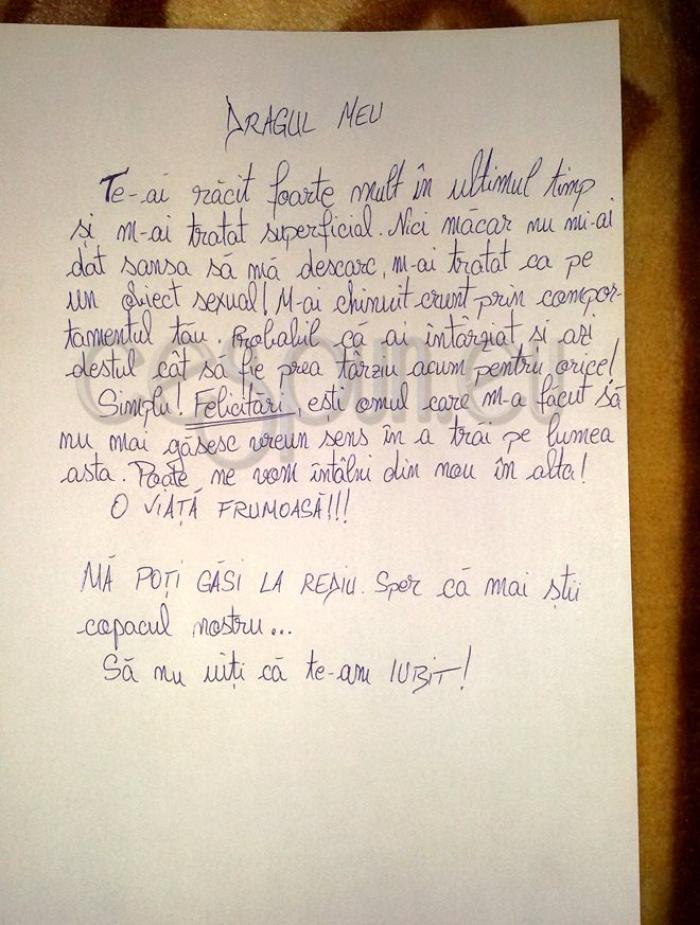 DRAGUL MEU
Te-ai răcit foarte mult în ultimul timp
și m-ai tratat superficial. Nici măcar nu mi-ai
dat sansa să mă descarc, m-ai tratat ca pe
un obiect sexual! M-ai chinuit crunt prin compor-
tamentul tău. Probabil că ai întârziat și azi
destul cât să fie prea târziu acum pentru orice!
Simplu! Felicitări, ești omul care m-a făcut să
nu mai găsesc vreun sens în a trăi pe lumea
asta. Poate ne vom întâlni din nou în alta!
O VIAȚĂ FRUMOASĂ!!!
MĂ POȚI GĂSI LA REDIU. Sper că mai știi
copacul nostru...
Să nu uiți că te-am IUBIT!